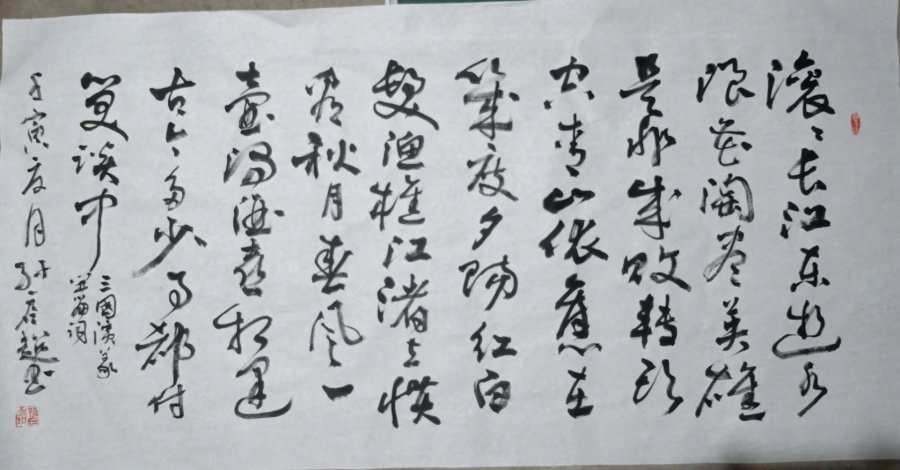 滚滚长江东逝水
浪花淘尽英雄
是非成败轉頭
空青山依舊在
幾度夕陽红白
髮渔樵江渚上惯
看秋月春風一
壶濁酒喜相逢
古今多少事都付
笑谈中
三國演義
開篇词
壬寅夏月 超书